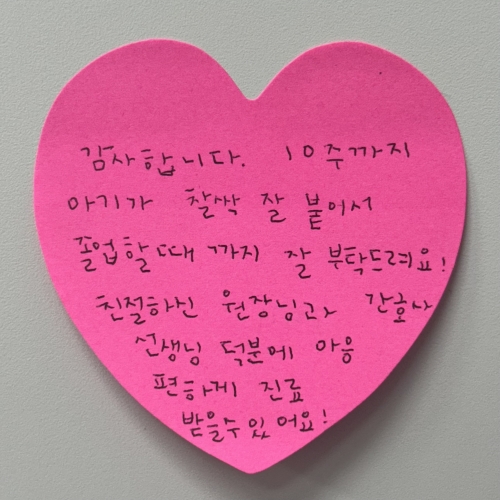 감사합니다. 10주까지
아기가 찰싹 잘 붙어서
졸업할때 까지 잘 부탁드려요!
친절하신 원장님과 간호사
선생님 덕분에 마음
편하게 진료
받을수 있어요!